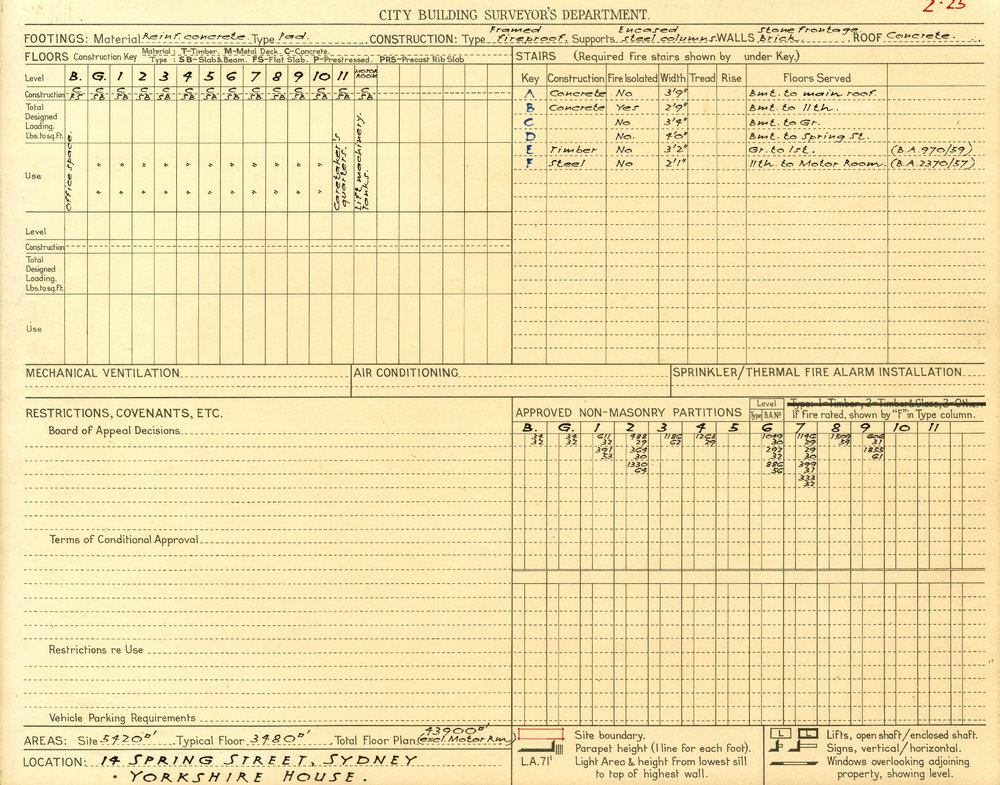 2.25
CITY BUILDING SURVEYOR'S DEPARTMENT.
FOOTINGS: Material Reinf. concrete. Type Pad. CONSTRUCTION: Type Framed Fireproof. Supports Encased steel columns. WALLS Stone frontage brick. ROOF Concrete.
FLOORS Construction Key Material : T-Timber. M-Metal Deck. C-Concrete.
Type : SB-Slab & Beam. FS-Flat Slab. P-Prestressed. PRS-Precast Rib Slab
Level B. G. 1 2 3 4 5 6 7 8 9 10 11 MOTOR ROOM
Construction C FS C SB C SB C SB C SB C SB C SB C SB C SB C SB C SB C SB C SB C SB
Total Designed Loading. Lbs. to sq. ft.
Use Office space. " " " " " " " " " " Caretaker's quarters. Lift machinery. Tanks.
Level
Construction
Total Designed Loading. Lbs. to sq. ft.
Use
STAIRS (Required fire stairs shown by under Key.)
Key Construction Fire Isolated Width Tread Rise Floors Served
A Concrete No 3'9" Bmt. to main roof.
B Concrete Yes 2'9" Bmt. to 11th.
C No 3'4" Bmt. to Gr.
D No. 4'0" Bmt. to Spring St.
E Timber No 3'2" Gr. to 1st. (B.A. 970/59)
F Steel No 2'1" 11th. to Motor Room. (B.A. 2370/57)
MECHANICAL VENTILATION
AIR CONDITIONING
SPRINKLER/THERMAL FIRE ALARM INSTALLATION
RESTRICTIONS, COVENANTS, ETC.
Board of Appeal Decisions
Terms of Conditional Approval
Restrictions re Use
Vehicle Parking Requirements
APPROVED NON-MASONRY PARTITIONS Level Type: 1-Timber, 2-Timber & Glass, 3-Other.
Type B.A.Nº If fire rated, shown by "F" in Type column.
B. G. 1 2 3 4 5 6 7 8 9 10 11
34 34 611 488 1186 1263 1049 1146 1509 606
32 32 32 29 62 29 30 29 59 31
391 364 292 29 1855
53 30 32 30 61
1330 886 399
64 56 31
333
32
AREAS: Site 5420 □' Typical Floor 3480 □' Total Floor Plan 43900 □' (excl. Motor Rm)
LOCATION: 14 SPRING STREET, SYDNEY
• YORKSHIRE HOUSE.
Site boundary.
Parapet height (1 line for each foot).
L.A.71' Light Area & height from lowest sill
to top of highest wall.
L L Lifts, open shaft/enclosed shaft.
Signs, vertical/horizontal.
Windows overlooking adjoining
property, showing level.